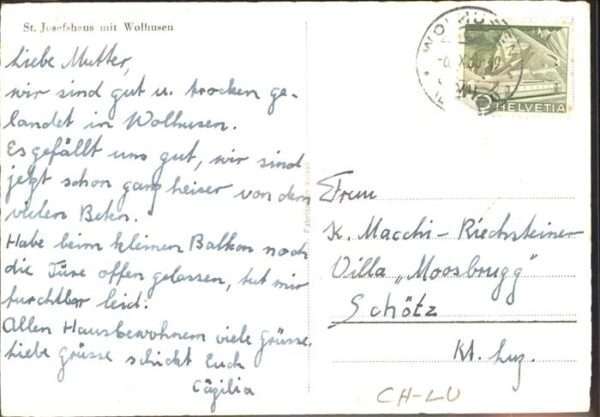 St. Josefshaus mit Wolhusen
Liebe Mutter,
wir sind gut u. trocken ge-
landet in Wolhusen.
Es gefällt uns gut, wir sind
jetzt schon ganz heiser von dem
vielen Beten.
Habe beim kleinen Balkon noch
die Türe offen gelassen, tut mir
furchtbar leid.
Allen Hausbewohnern viele Grüsse.
Liebe Grüsse schickt Euch
Cäzilia
WOLHUSEN
HELVETIA
Frau
K. Macchi-Riechsteiner
Villa „Moosbrugg"
Schötz
Kt. Luz.
CH-LU